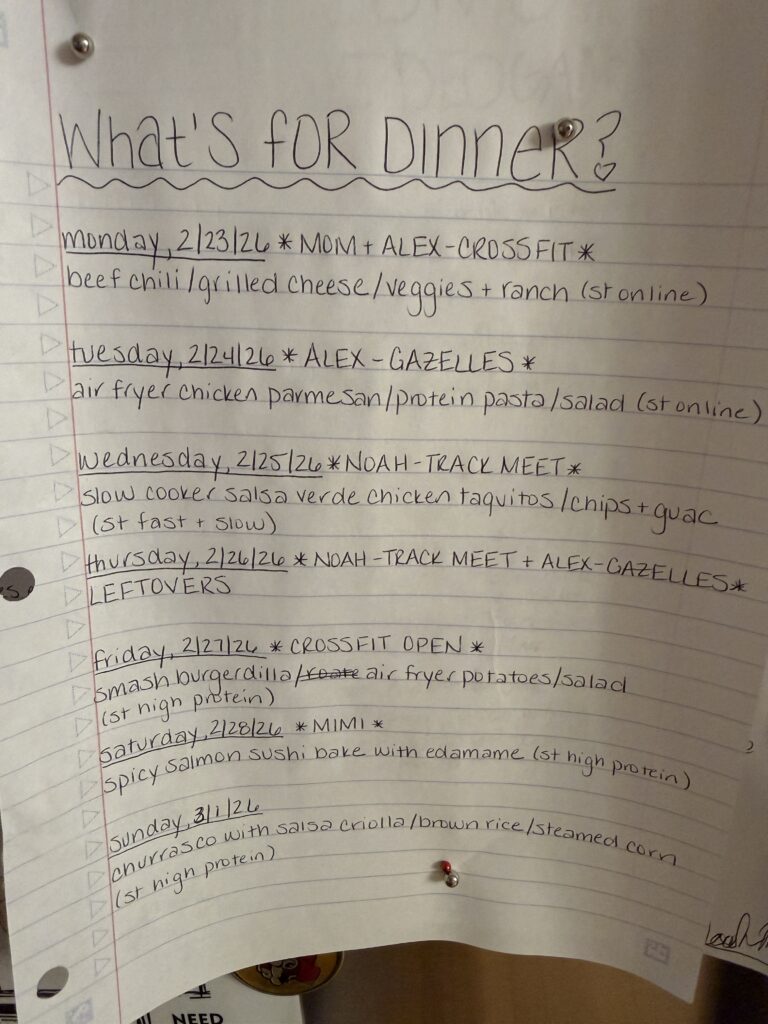 What's for Dinner?
monday, 2/23/26 * MOM + ALEX - CROSSFIT *
beef chili/grilled cheese/veggies + ranch (st online)
tuesday, 2/24/26 * ALEX - GAZELLES *
air fryer chicken parmesan/protein pasta/salad (st online)
wednesday, 2/25/26 * NOAH - TRACK MEET *
slow cooker salsa verde chicken taquitos/chips + guac
(st fast + slow)
thursday, 2/26/26 * NOAH - TRACK MEET + ALEX - GAZELLES *
LEFTOVERS
friday, 2/27/26 * CROSSFIT OPEN *
smash burgerdilla/air fryer potatoes/salad
(st high protein)
saturday, 2/28/26 * MIMI *
spicy salmon sushi bake with edamame (st high protein)
sunday, 3/1/26
churrasco with salsa criolla/brown rice/steamed corn
(st high protein)
NEED